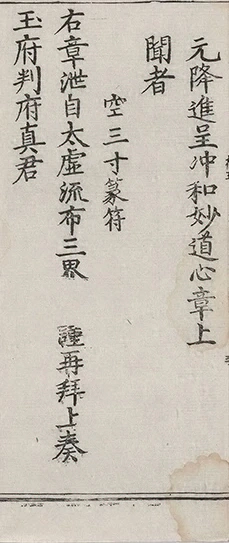 元降進呈冲和妙道心章上
聞者
空三寸篆符
右章泄自太虛流布三界　謹再拜上奏
玉府判府真君